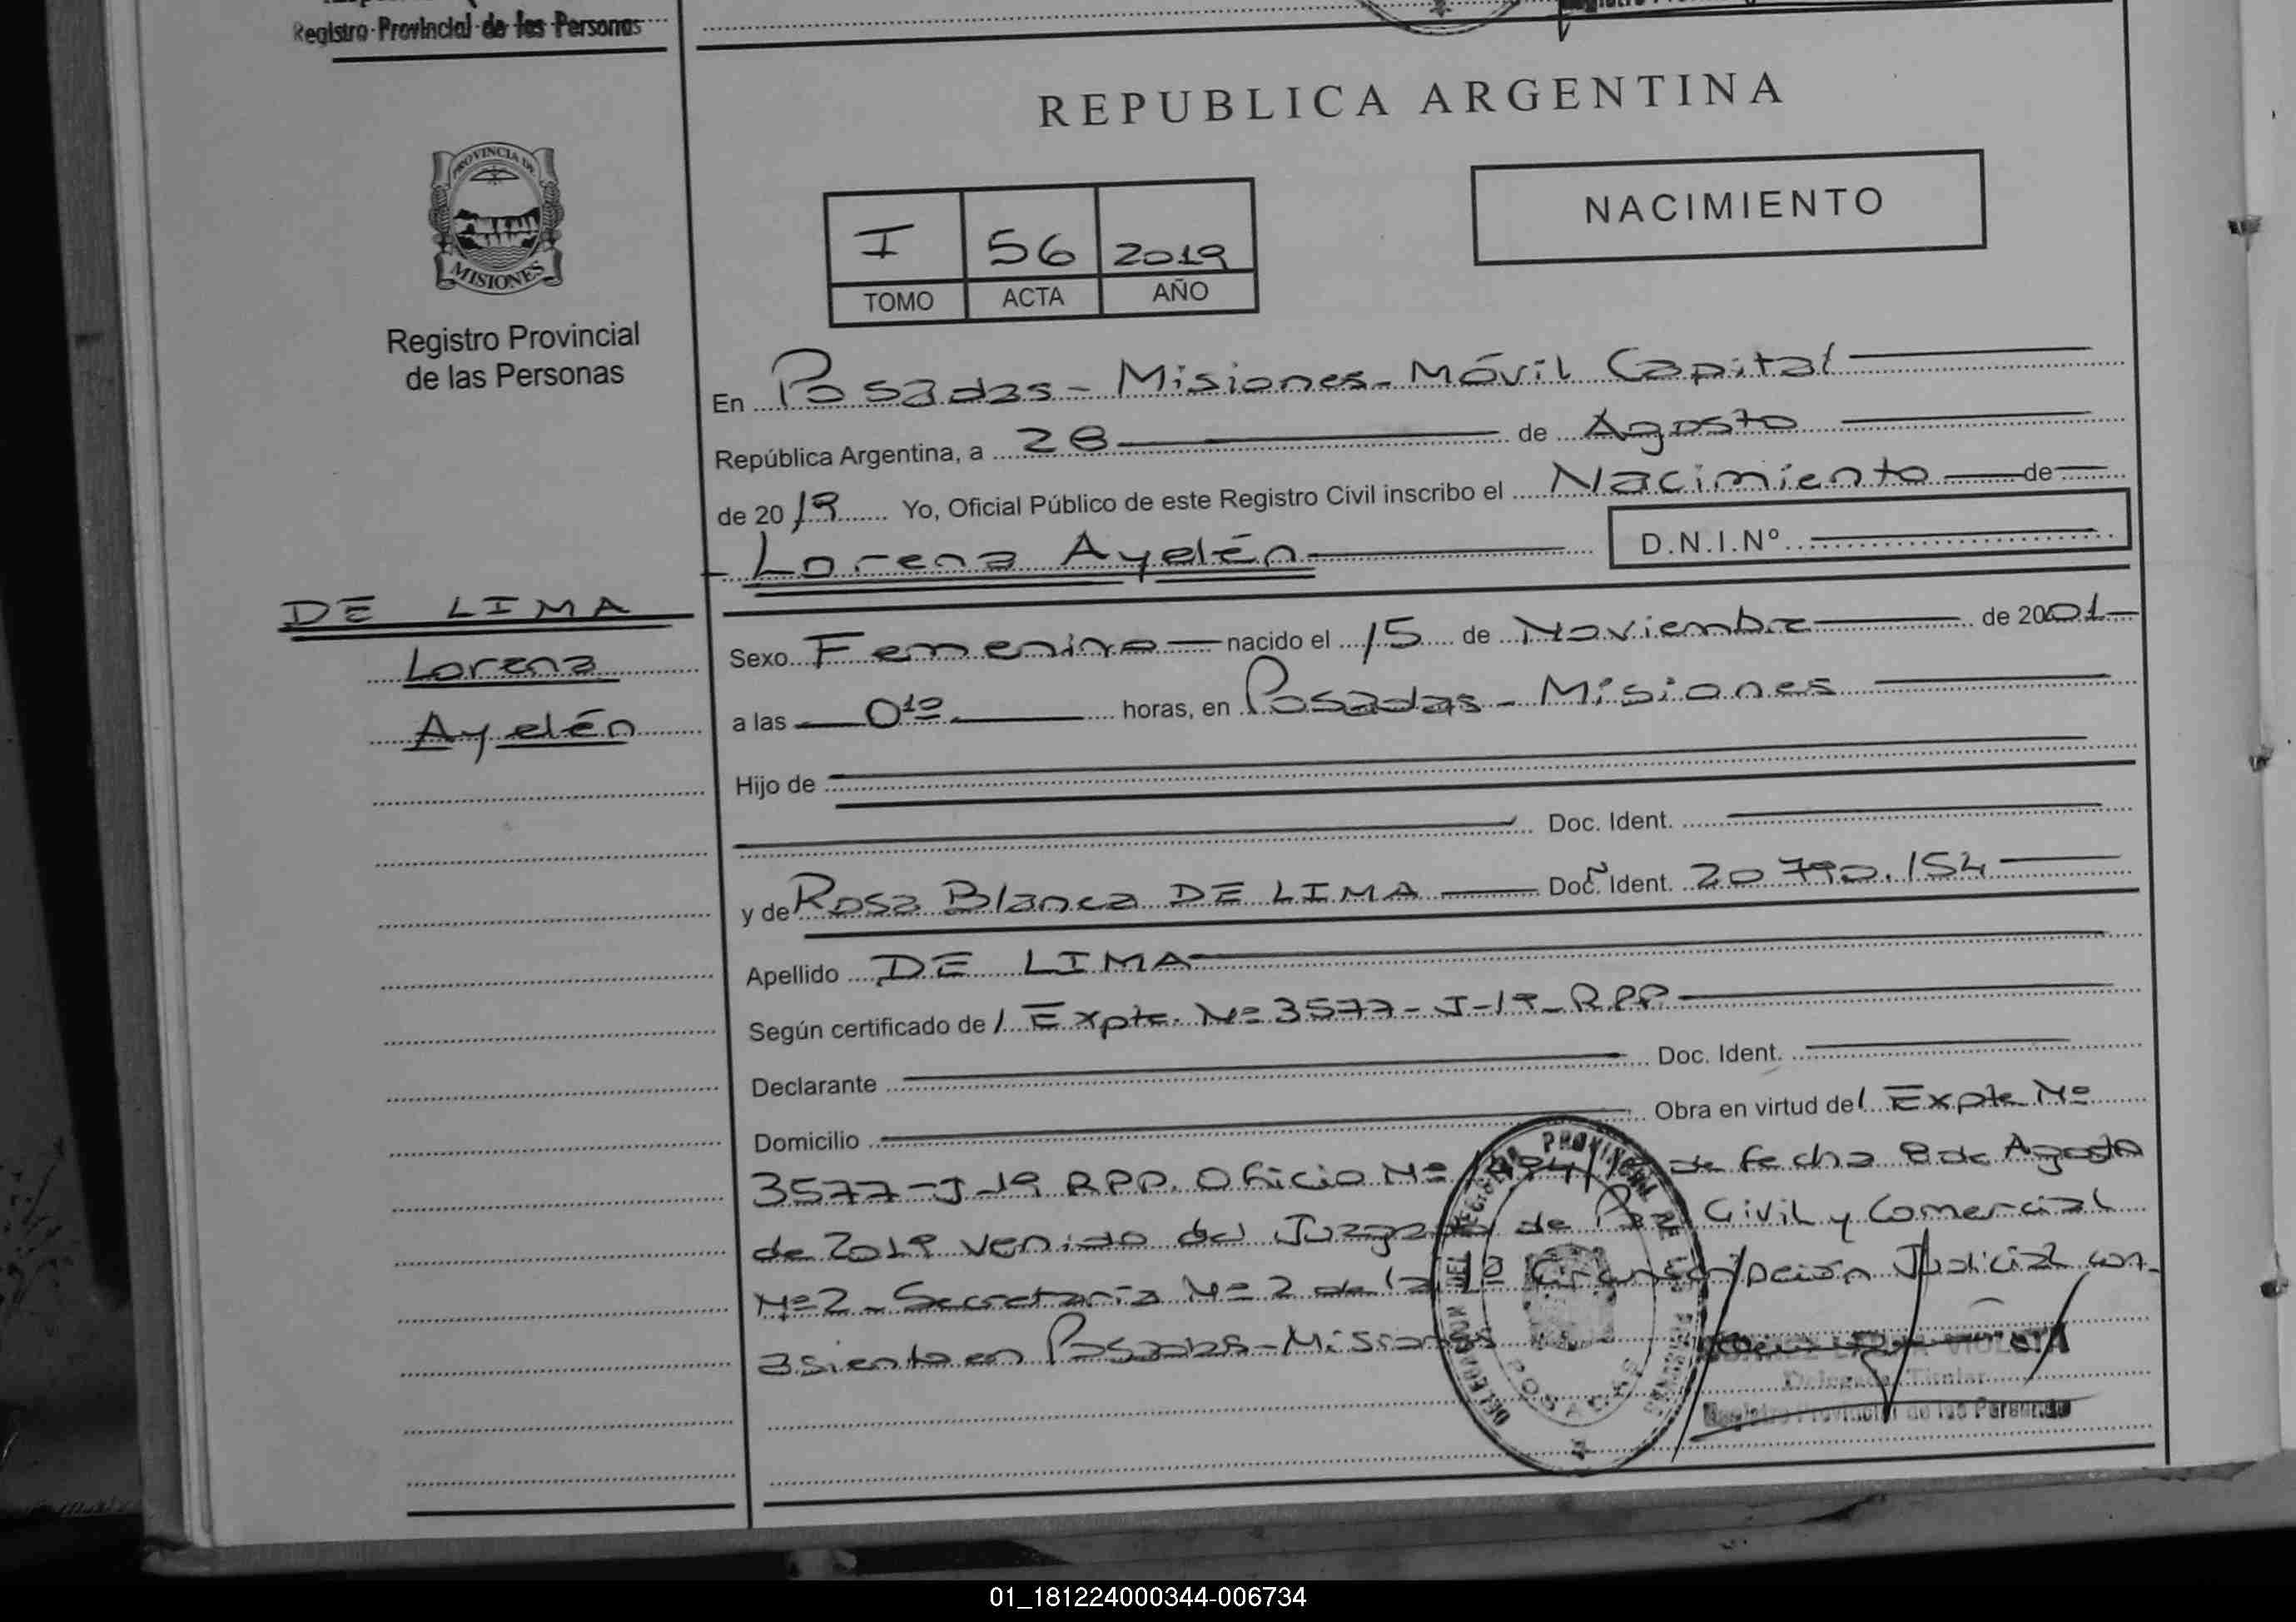 Registro Provincial de las Personas
REPUBLICA ARGENTINA
PROVINCIA DE
MISIONES
Registro Provincial
de las Personas
NACIMIENTO
I 56 2019
TOMO ACTA AÑO
En Posadas - Misiones - Móvil Capital
República Argentina, a 28 de Agosto
de 2019 Yo, Oficial Público de este Registro Civil inscribo el Nacimiento de
Lorena Ayelén D.N.I.Nº
DE LIMA
Lorena
Ayelén
Sexo Femenino nacido el 15 de Noviembre de 2001
a las 0¹⁰ horas, en Posadas - Misiones
Hijo de
Doc. Ident.
y de Rosa Blanca DE LIMA Doc. Ident. 20 790.154
Apellido DE LIMA
Según certificado de l Expte. Nº 3577 - J - 19 - RPP
Declarante Doc. Ident.
Domicilio Obra en virtud del Expte Nº
3577 - J - 19 RPP. Oficio Nº de fecha 8 de Agosto
de 2019 venido del Juzgado de Paz Civil y Comercial
Nº 2 - Secretaria Nº 2 de la 1º Circunscripción Judicial con
asiento en Posadas - Misiones
DELEGACION DEL REGISTRO PROVINCIAL DE LAS PERSONAS
POSADAS
VIOLETA
Delegada Titular
Registro Provincial de las Personas
01_181224000344-006734